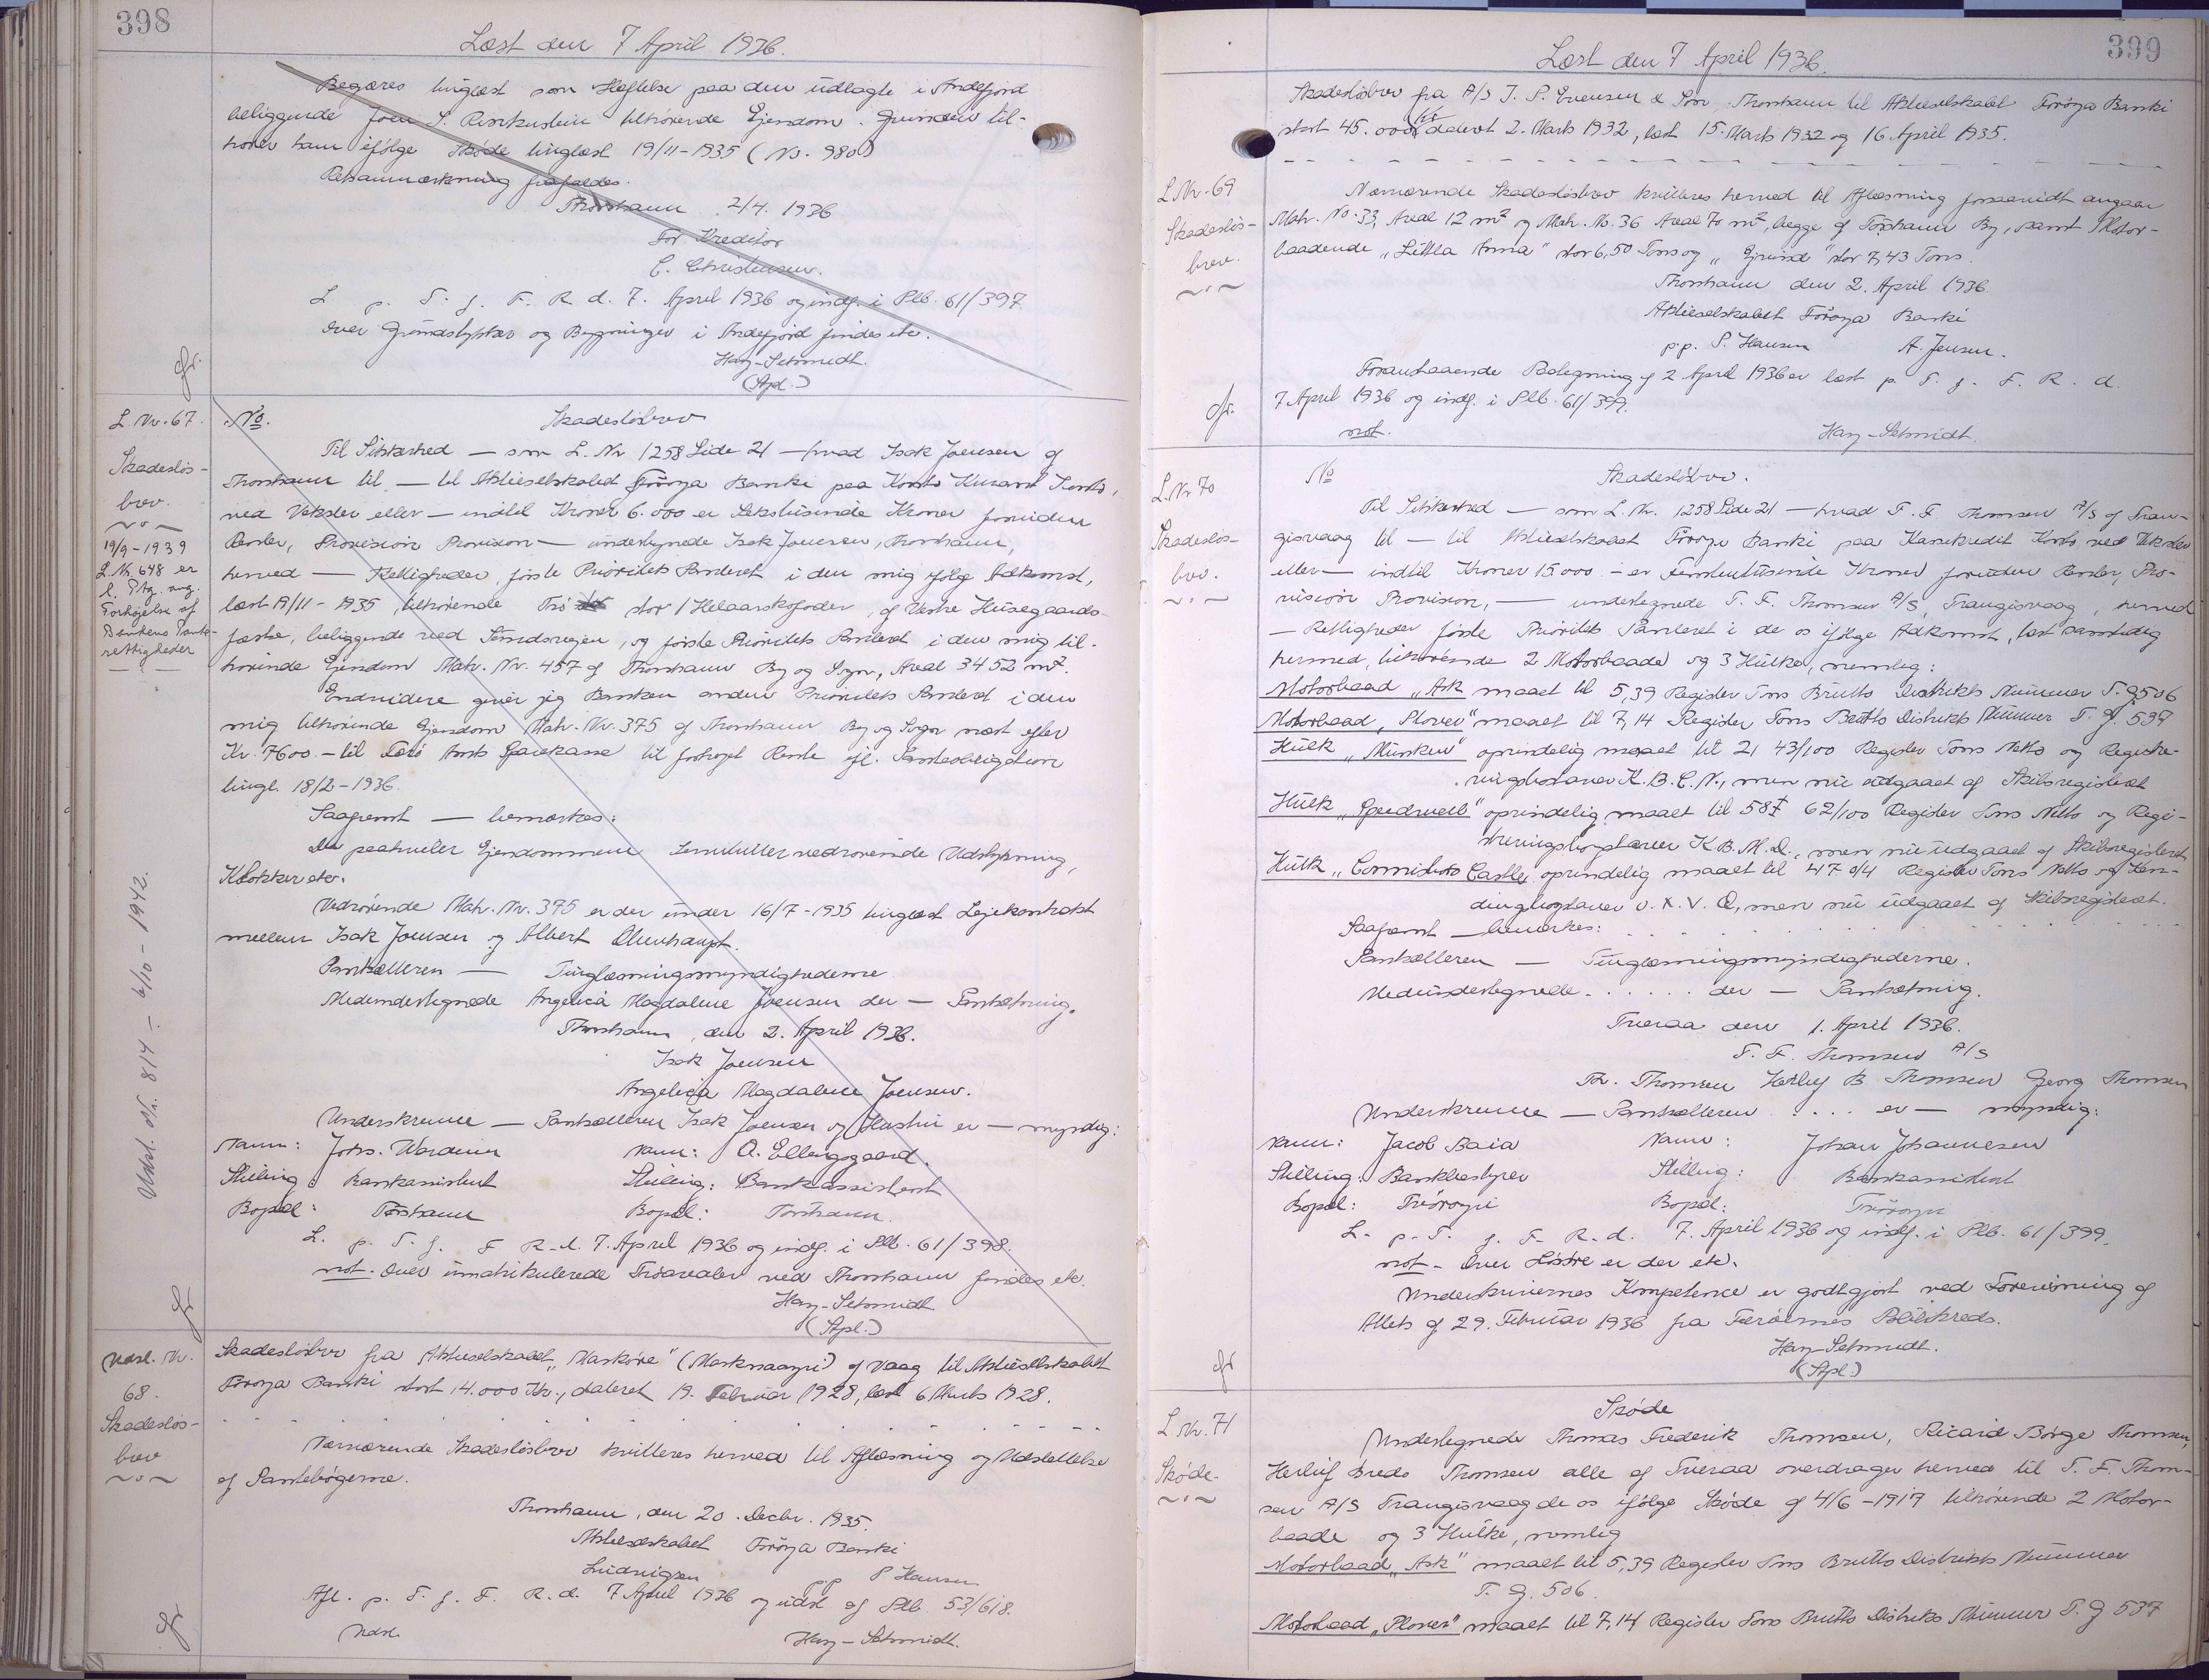 398
Læst den 7 April 1936.
Begæres tinglæst som Hæftelse paa den udlagte i Andefjord
beliggende Joen S. tilhørende Ejendom. Grunden til-
hører ham ifølge Skøde tinglæst 19/11-1935 (No. 980)
Retsanmærkning frafaldes.
Thorshavn 2/4. 1936
For Kreditor
C. Christensen.
L p. T. f. F. R. d. 7. April 1936 og indf. i Plb. 61/397.
Over Grundstykker og Bygninger i Andefjord findes etc.
Hay-Schmidt.
(Apl.)
gfr.
L. Nr. 67.
Skadesløs-
brev.
19/9-1939
L. Nr. 648 er
l. Ptg. ang.
Forhøjelse af
Bankens Pante-
rettigheder
Udsl. Nr. 814 - 6/10 - 1942.
No. Skadesløsbrev
Til Sikkerhed — som L. Nr 1258 Side 21 — hvad Isak Joensen af
Thorshavn til — til Aktieselskabet Føroya Banki paa Konto Kurant Konto,
ved Veksler eller — indtil Kroner 6.000 er Sekstusinde Kroner foruden
Renter, Provision Provision — undertegnede Isak Joensen, Thorshavn,
herved — Rettigheder, første Prioritets Panteret i den mig ifølge Adkomst,
læst 19/11 - 1935, tilhørende Trø stor 1 Helaarskofoder, af Vestre Husegaards-
fæste, beliggende ved Sundsvejen, og første Prioritets Panteret i den mig til-
hørende Ejendom Matr. Nr. 457 af Thorshavn By og Sogn, Areal 3452 m².
Endvidere giver jeg Banken anden Prioritets Panteret i den
mig tilhørende Ejendom Matr. Nr. 375 af Thorshavn By og Sogn næst efter
Kr. 7600 - til Færø Amts Sparekasse til forhøjet Rente ifl. Panteobligation
tingl. 18/2-1936.
Saafremt — bemærkes:
Der paahviler Ejendommene Servitutter vedrørende Udstykning,
Klokker etc.
Vedrørende Matr. Nr. 375 er der under 16/7-1935 tinglæst Lejekontrakt
mellem Isak Joensen og Albert Olenhaupt.
Pantsætteren — Tinglæsningsmyndighederne
Medundertegnede Angelica Magdalene Joensen der — Pantsætning.
Thorshavn, den 2. April 1936.
Isak Joensen
Angelica Magdalene Joensen.
Underskrevne — Pantsætteren Isak Joensen og Hustru er — myndig:
Navn: Johs. Wardum Navn: O. Ellingsgaard.
Stilling: Bankassistent Stilling: Bankassistent
Bopæl: Tórshavn Bopæl: Tórshavn.
L. p. T. f. F R.d. 7. April 1936 og indf. i Plb. 61/398.
not. Over umatrikulerede Trøarealer ved Thorshavn findes etc.
Hay-Schmidt
(Apl.)
gfr
Udsl. Nr.
68.
Skadesløs-
brev
Skadesløsbrev fra Aktieselskabet „Maskóre" (Marknaoyri) af Vaag til Aktieselskabet
Føroya Banki stort 14.000 Kr., dateret 19. Februar 1928, læst 6 Marts 1928.
Nærværende Skadesløsbrev kvitteres herved til Aflæsning og Udslettelse
af Pantebøgerne.
Thorshavn, den 20. Decbr. 1935.
Aktieselskabet Føroya Banki
Ludvigsen pp P Hansen
Afl. p. T. f. F. R. d. 7 April 1936 og udsl af Plb. 53/618.
Udsl. Hay-Schmidt.
gfr
399
Læst den 7 April 1936.
Skadesløsbrev fra A/S J. S. Evensen & Søn, Thorshavn til Aktieselskabet Føroya Banki
stort 45.000 Kr dateret 2. Marts 1932, læst 15. Marts 1932 og 16. April 1935.
L Nr. 69
Skadesløs-
brev.
Nærværende Skadesløsbrev kvitteres herved til Aflæsning forsaavidt angaar
Matr. No. 33, Areal 12 m² og Matr. No. 36 Areal 70 m², begge af Tórshavn By, samt Motor-
baadende „Littla Anna" stor 6,50 Tons og „Eyvind" stor 7,43 Tons.
Thorshavn den 2. April 1936
Aktieselskabet Føroya Banki
p.p. P. Hansen A. Jensen.
Foranstaaende Paategning af 2 April 1936 er læst p T. f. F. R. d.
7 April 1936 og indf. i Plb. 61/399.
not. Hay-Schmidt.
gfr.
L. Nr 70
Skadesløs-
brev.
No Skadesløsbrev.
Til Sikkerhed — som L. Nr. 1258 Side 21 — hvad T. F. Thomsen A/S af Tran-
gisvaag til — til Aktieselskabet Føroya Banki paa Kassekredit Konto ved Veksler
eller — indtil Kroner 15.000 - er Femtentusinde Kroner foruden Renter, Pro-
vision Provision, — undertegnede T. F. Thomsen A/S, Trangisvaag, herved
— Rettigheder første Prioritets Panteret i de os ifølge Adkomst, læst samtidig
hermed, tilhørende 2 Motorbaade og 3 Hulke, nemlig:
Motorbaad „Ask maalt til 5,39 Register Tons Brutto Distrikts Nummer T. G 506
Motorbaad „Plover" maalt til 7,14 Register Tons Brutto Distrikts Nummer T. G. 537
Hulk „Munken" oprindelig maalt til 21 43/100 Register Tons Netto og Registre-
ringsbogstaver K.B.C.N., men nu udgaaet af Skibsregistret
Hulk „Speedwell" oprindelig maalt til 58 62/100 Register Tons Netto og Regi-
streringsbogstaver K.B.M.D., men nu udgaaet af Skibsregistret
Hulk „Cornisboro Castle oprindelig maalt til 47 04 Register Tons Netto og Ken-
dingbogstaver v.X.V.Q, men nu udgaaet af Skibsregistret.
Saafremt — bemærkes:
Pantsætteren — Tinglæsningsmyndighederne.
Medundertegnede . . . . . der — Pantsætning.
Tveraa den 1. April 1936.
T. F. Thomsen A/S
Th. Thomsen Herluf B Thomsen Georg Thomsen
Underskrevne — Pantsætteren . . . . er — myndig:
Navn: Jacob Baia Navn: Johan Johannesen
Stilling: Bankbestyrer Stilling: Bankassistent
Bopæl: Trøroyri Bopæl: Trøroyri
L. p. T. f. F. R. d. 7. April 1936 og indf. i Plb. 61/399.
not - Over Løsøre er der etc.
Underskrivernes Kompetence er godtgjort ved Forevisning af
Attest af 29. Februar 1936 fra Færøernes Politikreds.
Hay-Schmidt.
(Apl.)
gfr
L Nr. 71
Skøde-
Skøde
Undertegnede Thomas Frederik Thomsen, Ricard Børge Thomsen,
Herluf Bredo Thomsen alle af Tveraa overdrager herved til T. F. Thom-
sen A/S Trangisvaag de os ifølge Skøde af 4/6-1917 tilhørende 2 Motor-
baade og 3 Hulke, nemlig
Motorbaad „Ask" maalt til 5,39 Register Tons Brutto Distrikts Nummer
T. G. 506.
Motorbaad „Plover" maalt til 7,14 Register Tons Brutto Distrikts Nummer T. G 537